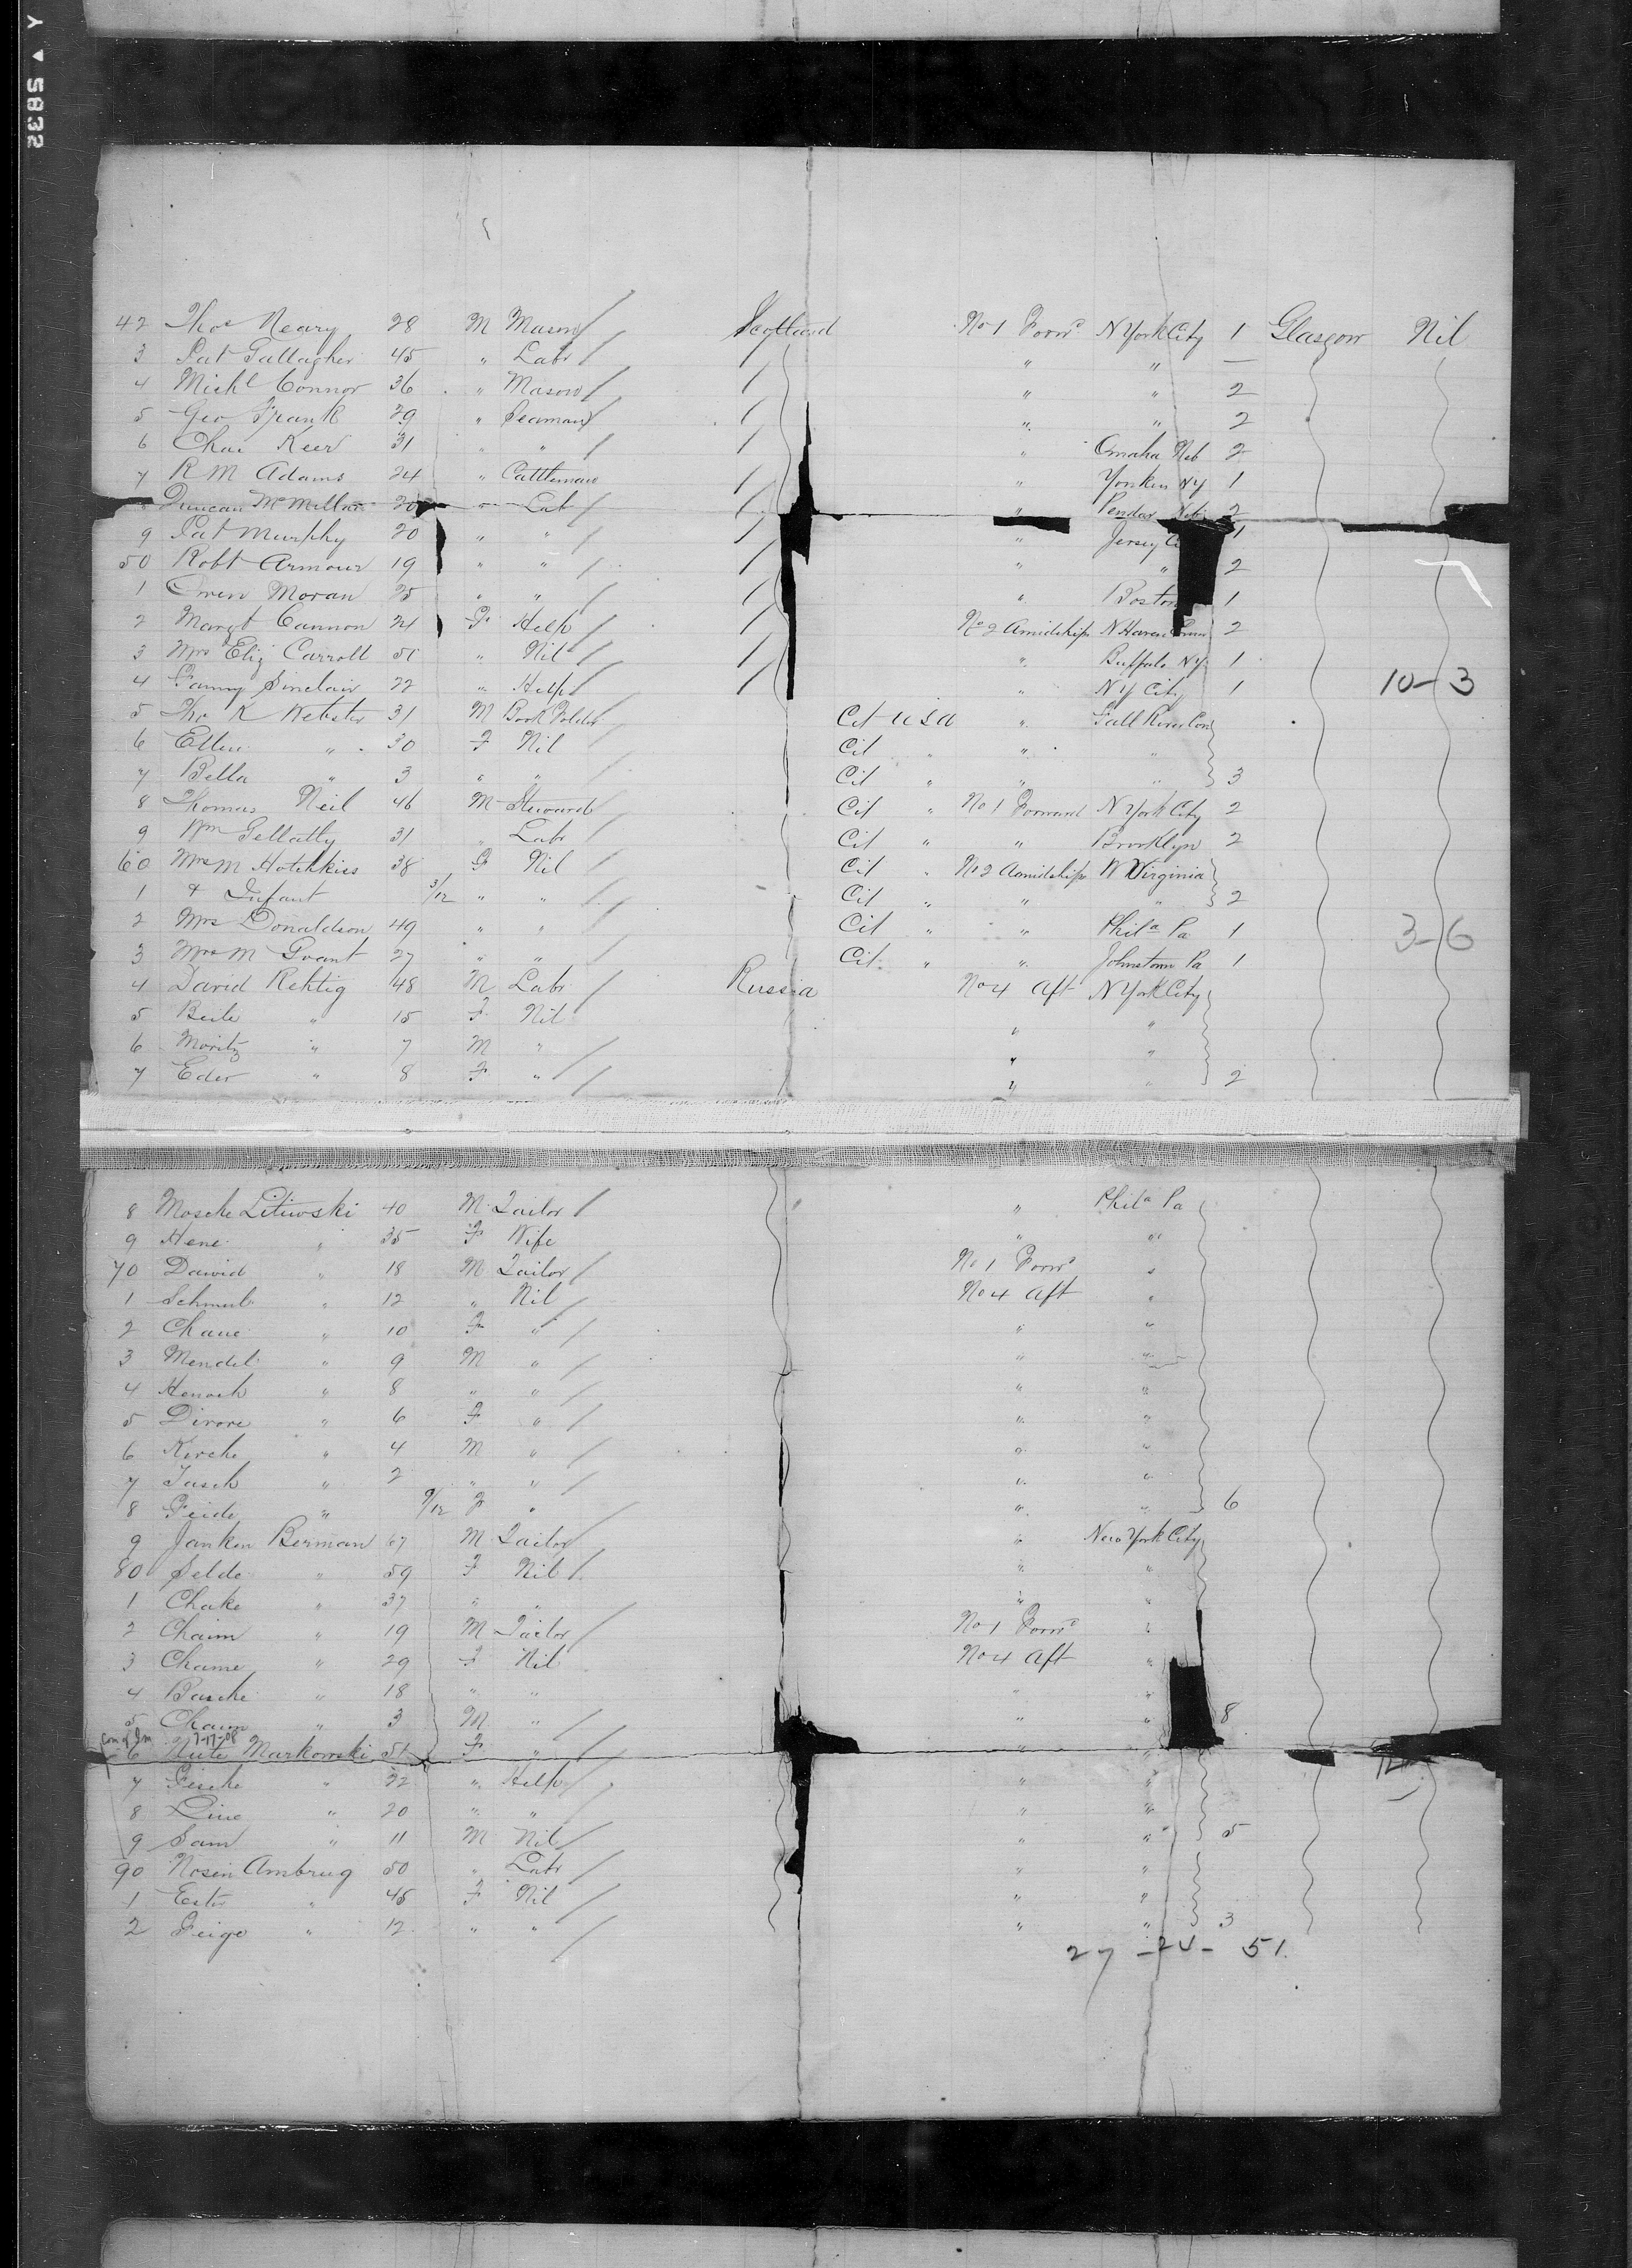 42 Thos Neary 28 M Mason Scotland No 1 Forwd N York City 1 Glasgow Nil
3 Pat Gallagher 45 " Labr " " —
4 Michl Connor 36 " Mason " " 2
5 Geo Frank 29 " Seaman " " 2
6 Chas Keer 31 " " " Omaha Neb 2
7 R M Adams 24 " Cattleman " Yonkers NY 1
Duncan McMillan 20 " Lab " Pendar Neb 2
9 Pat Murphy 20 " " " Jersey 1
50 Robt Armour 19 " " " " 2
1 Owen Moran 25 " " " Boston 1
2 Margt Cannon 21 F Help No 2 Amidships N Haven Conn 2
3 Mrs Eliz Carroll 51 " Nil " Buffalo NY 1
4 Fanny Sinclair 22 " Help " N Y City 1 10-3
5 Tho K Webster 31 M Book Folder Cit U S A " Fall River Con
6 Ellen " 30 F Nil Cit " " "
7 Bella " 3 " " Cit " " " 3
8 Thomas Neil 46 M Steward Cit " No 1 Forward N York City 2
9 Wm Gellatly 31 " Labr Cit " " Brooklyn 2
60 Mrs M Hotchkiss 38 F Nil Cit " No 2 Amidships W Virginia
1 & Infant 3/12 " " Cit " " " 2
2 Mrs Donaldson 49 " " Cit " " Phila Pa 1 3-6
3 Mrs M Grant 27 " " Cit " " Johnstown Pa 1
4 David Rehtig 48 M Labr Russia No 4 Aft N York City
5 Beile " 15 F Nil " "
6 Moritz " 7 M " " "
7 Eder " 8 F " " " 2
8 Mosche Litiwski 40 M Tailor " Phila Pa
9 Hene " 35 F Wife " "
70 Dawid " 18 M Tailor No 1 Forwd "
1 Schmul " 12 " Nil No 4 Aft "
2 Chane " 10 F " " "
3 Mendel " 9 M " " "
4 Henoch " 8 " " " "
5 Dirore " 6 F " " "
6 Kirche " 4 M " " "
7 Josch " 2 " " " "
8 Feide " 9/12 F " " " 6
9 Janken Berman 67 M Tailor " New York City
80 Selde " 59 F Nil " "
1 Chake " 37 " " " "
2 Chaim " 19 M Tailor No 1 Forwd "
3 Chame " 29 F Nil No 4 Aft "
4 Basche " 18 " " " "
5 Chaim " 3 M " " " 8
7-17-08
6 Mute Markowski 51 F " " "
7 Fische " 22 " Help " "
8 Line " 20 " " " "
9 Sam " 11 M Nil " " 5
90 Nosen Ambrug 50 " Labr " "
1 Ester " 45 F Nil " "
2 Feige " 12 " " " " 3
27 - 24 - 51